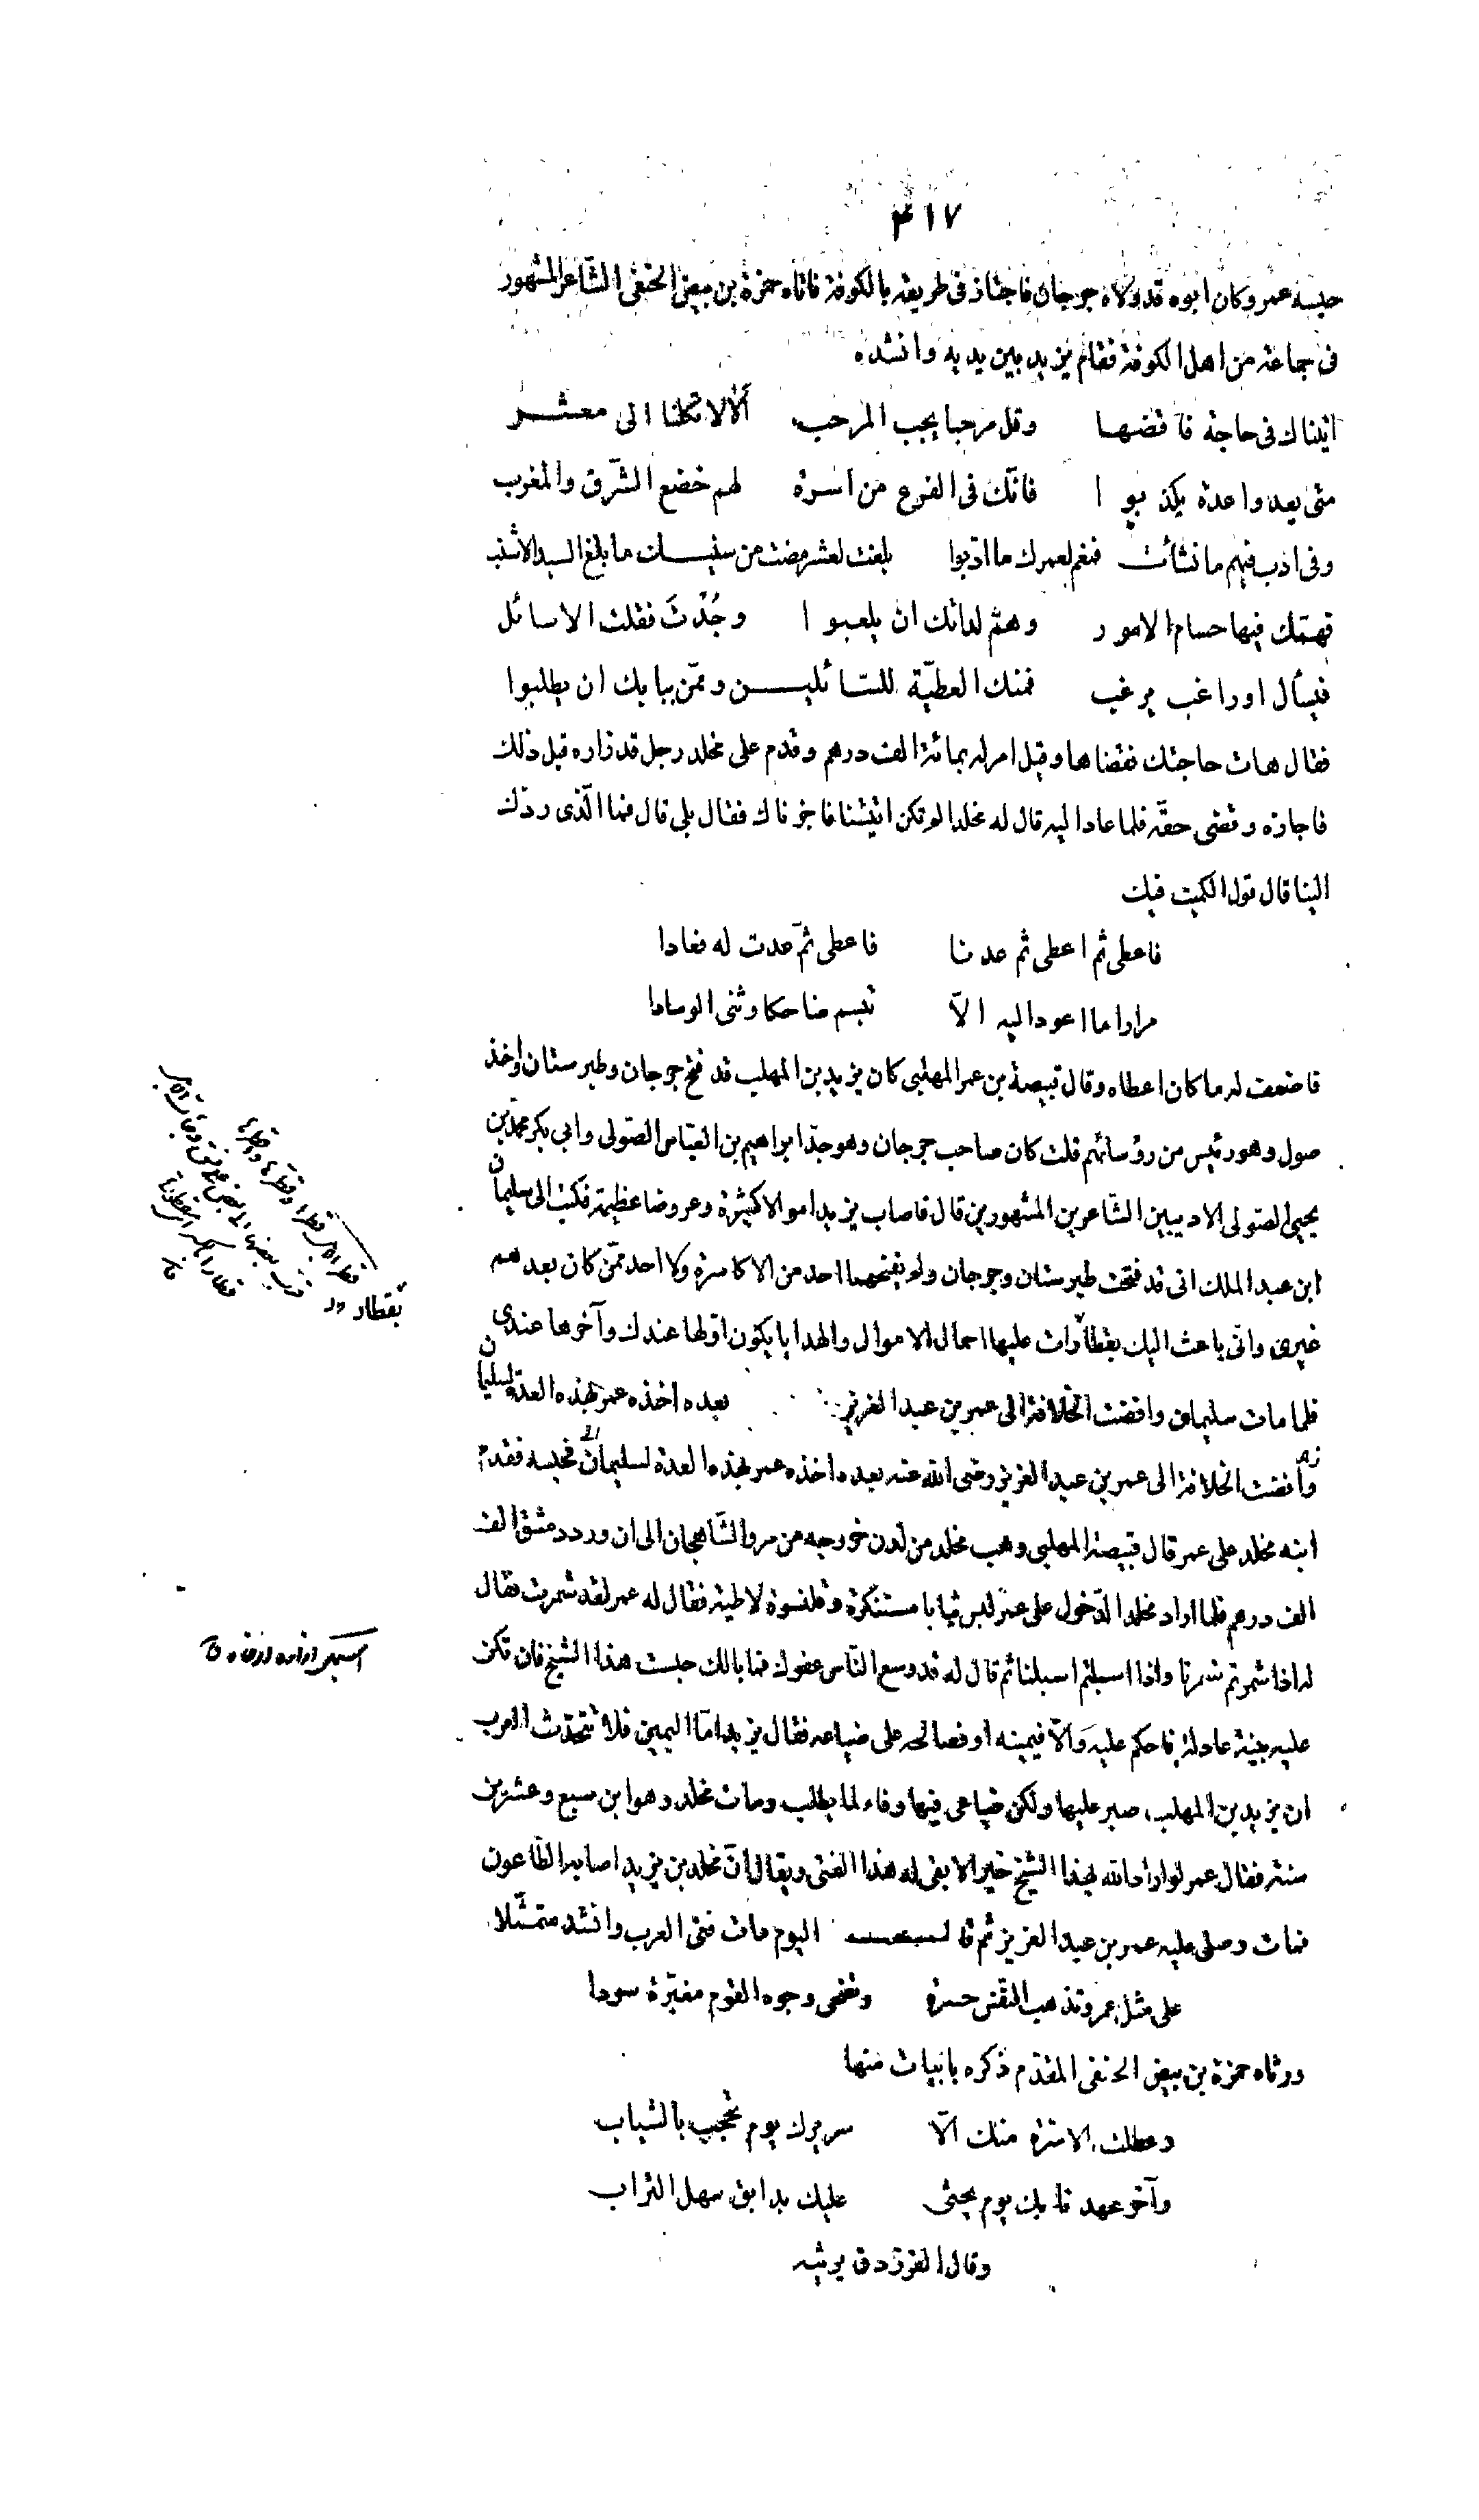 ٤١٧
حبسه عمر وكان ابوه قد ولاه جرجان فاجتاز فى طريقه بالكوفة فاتاه حمزة بن بيض الحنفى الشّاعر المشهور
فى جماعة من اهل الكوفة فقام يزيد بين يديه وانشده
اتيناك فى حاجة فاقضها وقل مرحبا يجب المرحب ألا لا تكلنا الى معشر
متى يعدوا عدة يكذبوا فانّك فى الفرع من اسرة لهم خضع الشّرق والمغرب
وفى ادب فيهم ما نشأت فنعم لعمرك ما ادّبوا بلغت لعشر مضت من سنيك ما يبلغ السيد الاشيب
فهمّك فيها جسام الامور وهمّ لداتك ان يلعبوا وجُدْتَ فقلت الا سائل
فيسأل او راغب يرغب فمنك العطيّة للسّائلين وممّن ببابك ان يطلبوا
فقال هات حاجتك فقضاها وقيل امر له بمائة الف درهم وقدم على مخلد رجل قد زاره قبل ذلك
فاجازه وقضى حقّه فلما عاد اليه قال له مخلد الم تكن اتيتنا فاجزناك فقال بلى قال فما الّذى ردّك
الينا قال قول الكميت فيك
فاعطى ثم اعطى ثم عدنا فاعطى ثمّ عدت له فعادا
مرارا ما اعود اليه الاّ تبسم ضاحكا وثنى الوسادا
فاضعف له ما كان اعطاه وقال قبيصة بن عمر المهلبى كان يزيد بن المهلب قد فتح جرجان وطبرستان واخذ
صول وهو رئيس من رؤسائهم قلت كان صاحب جرجان وهو جدّ ابراهيم بن العبّاس الصّولى وابى بكر محمّد بن
يحيى الصّولى الاديبين الشّاعرين المشهورين قال فاصاب يزيد اموالا كثيرة وعروضا عظيمة فكتب الى سليمان
ابن عبد الملك انى قد فتحت طبرستان وجرجان ولم يفتحهما احد من الاكاسرة ولا احد ممّن كان بعدهم
غيرى وانّى باعث اليك بقطارات عليها احمال الاموال والهدايا يكون اوّلها عندك وآخرها عندى
فلما مات سليمان وافضت الخلافة الى عمر بن عبد العزيز بعده اخذه عمر بهذه العدة لسليمان
وأفضت الخلافة الى عمر بن عبد العزيز رضى الله عنه بعده اخذه عمر بهذه العدة لسليمان فحبسه فقدم
ابنه مخلد على عمر قال قبيصة المهلبى وهب مخلد من لدن خروجه من مرو الشّاهجان الى ان ورد دمشق الف
الف درهم فلما اراد مخلد الدّخول على عمر لبس ثيابا مستنكرة وقلنسوة لاطية فقال له عمر لقد شمرت فقال
له اذا شمرتم شمرنا واذا اسبلتم اسبلنا ثم قال له قد وسع النّاس عفوك فما بالك حبست هذا الشيخ فان تكن
عليه بيّنة عادلة فاحكم عليه وَالاّ فيمينه او فصالحه على ضياعه فقال يزيد امّا اليمين فلا تتحدّث العرب
ان يزيد بن المهلب صبر عليها ولكن ضياعى فيها وفاء لما يطلب ومات مخلد وهو ابن سبع وعشرين
سنة فقال عمر لو اراد الله بهذا الشيخ خيرا لابقى له هذا الفتى ويقال انّ مخلد بن يزيد اصابه الطّاعون
فمات وصلى عليه عمر بن عبد العزيز ثم قال اليوم مات فتى العرب وانشد متمثّلا
على مثل عمرو تذهب النّفس حسرة وتضحى وجوه القوم مغبّرة سودا
ورثاه حمزة بن بيض الحنفى المقدّم ذكره بابيات منها
وعطلت الاسرة منك الاّ سريرك يوم تحجب بالثياب
وآخر عهدنا بك يوم يحثى عليك بدابق سهل التراب
وقال الفرزدق يرثيه